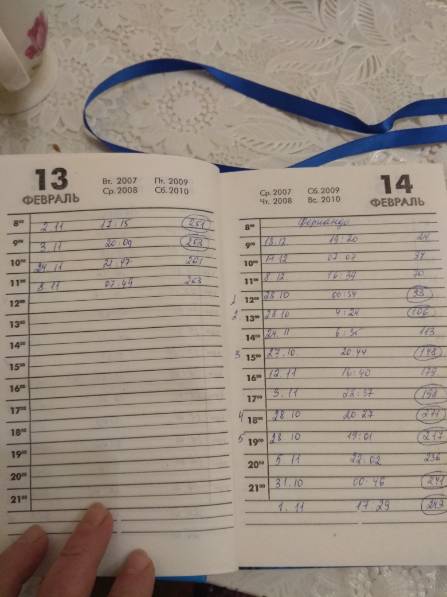 13
ФЕВРАЛЬ
Вт. 2007 Пт. 2009
Ср. 2008 Сб. 2010
8⁰⁰ 2.11 17:15 251
9⁰⁰ 3.11 20:09
10⁰⁰ 24.11 21:47 261
11⁰⁰ 8.11 07:49 263
12⁰⁰
13⁰⁰
14⁰⁰
15⁰⁰
16⁰⁰
17⁰⁰
18⁰⁰
19⁰⁰
20⁰⁰
21⁰⁰
14
ФЕВРАЛЬ
Ср. 2007 Сб. 2009
Чт. 2008 Вс. 2010
8⁰⁰ Фернандо
9⁰⁰ 13.12 19:20 24
10⁰⁰ 07:07 37
11⁰⁰ 8.12 70
1 12⁰⁰ 28.10 00:54 93
2 13⁰⁰ 28.10 4:24 106
14⁰⁰ 24.11 6:35 113
3 15⁰⁰ 27.10 20:44 148
16⁰⁰ 12.11 16:40 179
17⁰⁰ 3.11 22:37 198
4 18⁰⁰ 28.10 20:27 211
5 19⁰⁰ 28.10 19:01 217
20⁰⁰ 5.11 22:02 236
21⁰⁰ 31.10 00:46 241
1.11 17:29 247